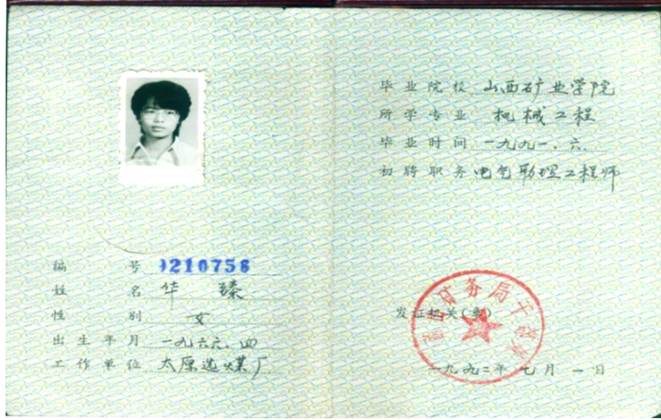 编号 0210758
姓名 华臻
性别 女
出生年月 一九六六.四
工作单位 太原选煤厂
毕业院校 山西矿业学院
所学专业 机械工程
毕业时间 一九九一.六.
初聘职务 电气助理工程师
务局干
发证机关(章)
一九九二年七月一日